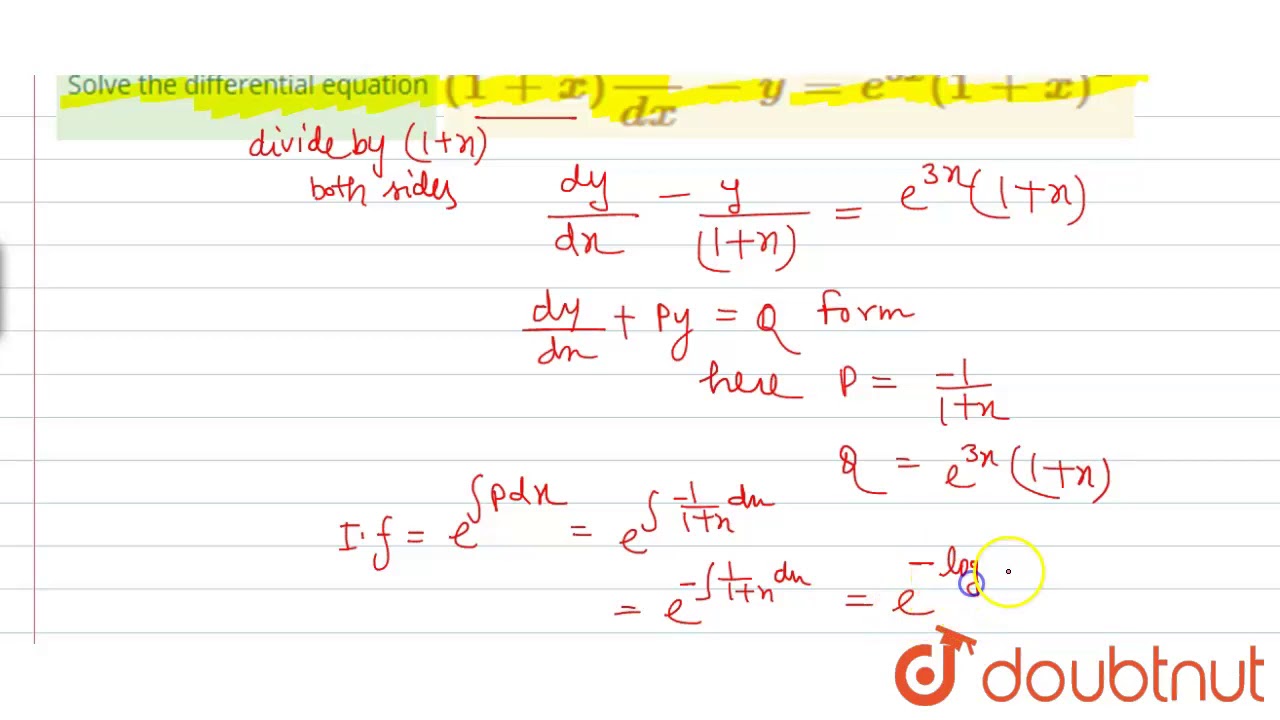 Solve the differential equation (1 + x) dy/dx − y = e^{3x} (1 + x)
divide by (1+x)
both sides
dy/dx − y/(1+x) = e^{3x}(1+x)
dy/dx + Py = Q form
here P = −1/1+x
Q = e^{3x}(1+x)
I.f = e^{∫Pdx} = e^{∫ −1/1+x dx}
= e^{−∫ 1/1+x dx} = e^{− log}
doubtnut